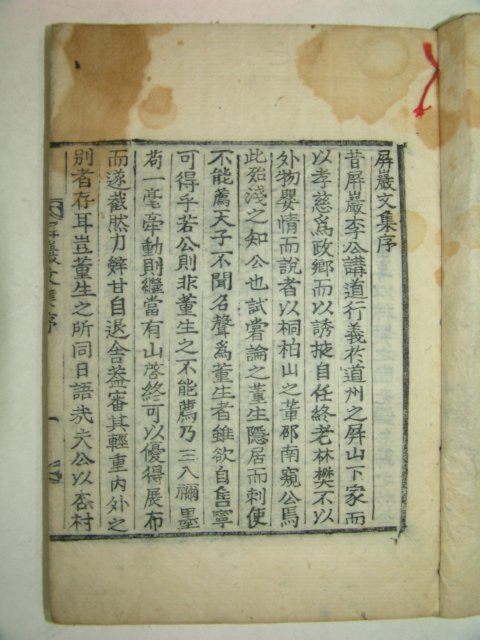 屛巖文集序
昔屛巖李公講道行義於道州之屛山下家而
以孝慈爲政鄕而以誘掖自任終老林樊不以
外物嬰情而說者以桐柏山之董邵南窺公焉
此殆淺之知公也試嘗論之董生隱居而刺使
不能薦天子不聞名聲爲董生者雖欲自舍寧
可得乎若公則非董生之不能薦乃三入禰墨
苟一毫牽動則繼當有山啓終可以優得展布
而遂截然力辭甘自退舍葢審其輕重內外之
別者存耳豈董生之所同日語哉夫公以杏村
屛巖文集序
一